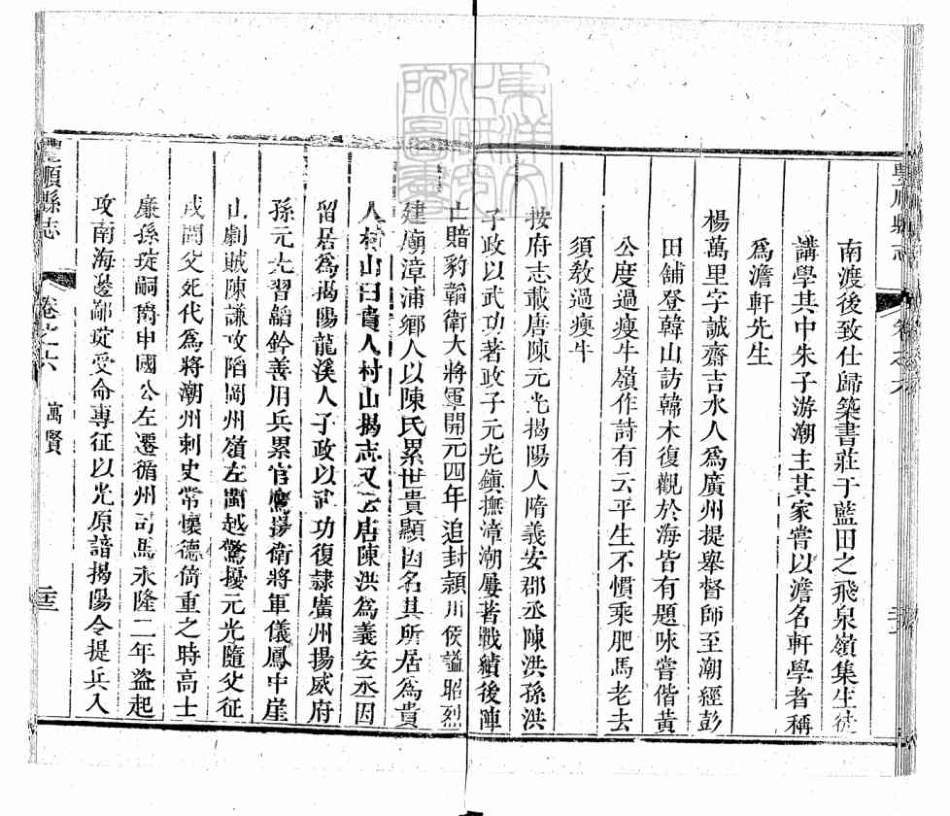 豐順縣志
卷之六
南渡後致仕歸築書莊于藍田之飛泉嶺集生徒
講學其中朱子游潮主其家嘗以澹名軒學者稱
為澹軒先生
楊萬里字誠齋吉水人為廣州提舉督師至潮經彭
田舖登韓山訪韓木復觀於海皆有題咏嘗偕黃
公度過瘦牛嶺作詩有云平生不慣乘肥馬老去
須敎過瘦牛
按府志載唐陳元光揭陽人隋義安郡丞陳洪孫洪
子政以武功著政子元光鎮撫漳潮屢著戰績後陣
亡贈豹韜衛大將軍開元四年追封潁川侯謚昭烈
建廟漳浦鄉人以陳氏累世貴顯因名其所居為貴
人村山曰貴人村山揭志又云唐陳洪為義安丞因
留居為揭陽龍溪人子政以武功復隷廣州揚威府
孫元光習韜鈐善用兵累官鷹揚衛將軍儀鳳中崖
山劇賊陳謙攻䧟岡州嶺左閩越驚擾元光隨父征
戍閩父死代為將潮州刺史常懷德倚重之時高士
廉孫琔嗣爵申國公左遷循州司馬永隆二年盜起
攻南海邊鄙琔受命專征以光原諳揭陽令提兵入
豐順縣志
卷之六
寓賢